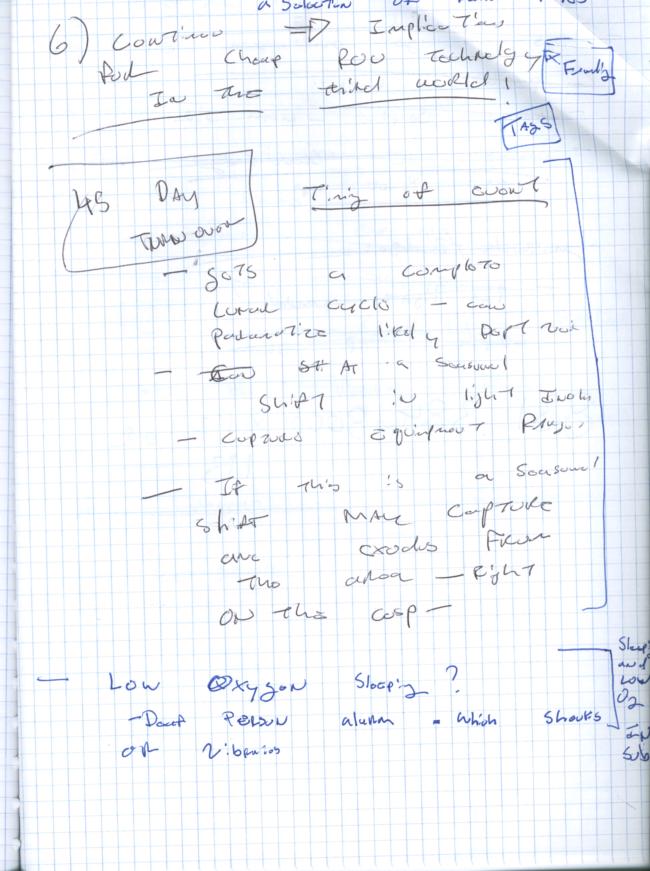 a Selection of
6) Continuo ⇒ Implications
For Cheap ROV Technology
In the third world!
Family
TAGS
45 DAY
TURNOVER
Timing of event
- gets a complete
Lunar cyclo - can
likely Dept
- at a Seasonal
Shift in light
- Equipment
- If this is a Seasonal
Shift MAY CAPTURE
an exodus From
the area - Right
ON the cusp -
- Low Oxygen Sleeping ?
- Deaf PERSON alarm - which shouts
or vibrates
Sleep
and
Low
O2
Sub